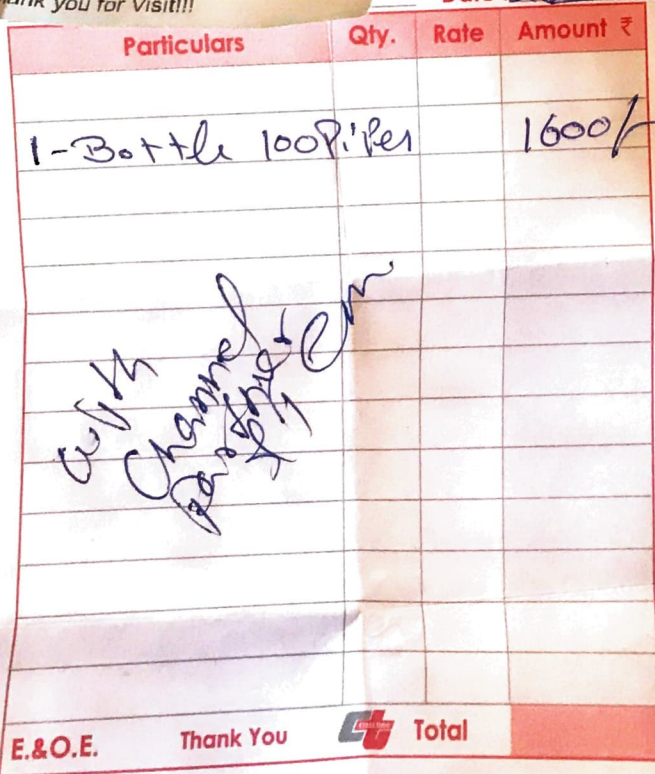 you for Visit!!!
Particulars Qty. Rate Amount ₹
1-Bottle 100 Pipers 1600/-
with
Channel
Partner
E.&O.E. Thank You Total